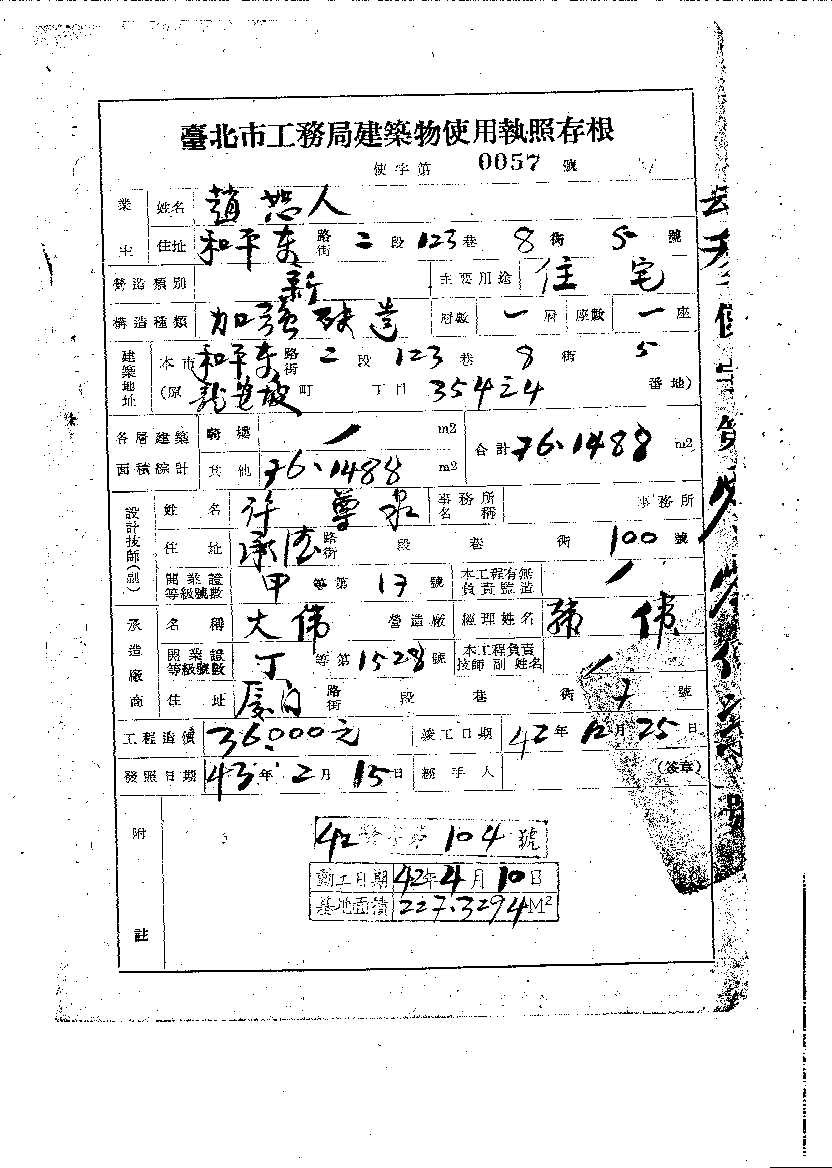 臺北市工務局建築物使用執照存根
使字第 0057 號
業主 姓名 趙恕人
住址 和平東路街 二段 123巷 8街 5號
營造類別 新 主要用途 住宅
構造種類 加強磚造 層數 一層 座數 一座
建築地址 本市 和平東路街 二段 123巷 8街 5
(原 龍安坡町 丁目 354之4 番地)
各層建築面積總計 騎樓 / m2 合計 76.1488 m2
其他 76.1488 m2
設計技師(副) 姓名 許尊泉 事務所名稱 事務所
住址 承德路街 段 巷 街 100號
開業證等級號數 甲等第 17 號 本工程有無負責監造 /
承造廠商 名稱 大偉 營造廠 經理姓名 韓偉
開業證等級號數 丁等第 1528 號 本工程負責技師副姓名 /
住址 路街 段 巷 街 號
工程造價 36,000元 竣工日期 42年12月25日
發照日期 43年2月15日 經手人 (簽章)
附註
42 字第 104 號
動工日期 42年4月10日
基地面積 227.3294M²